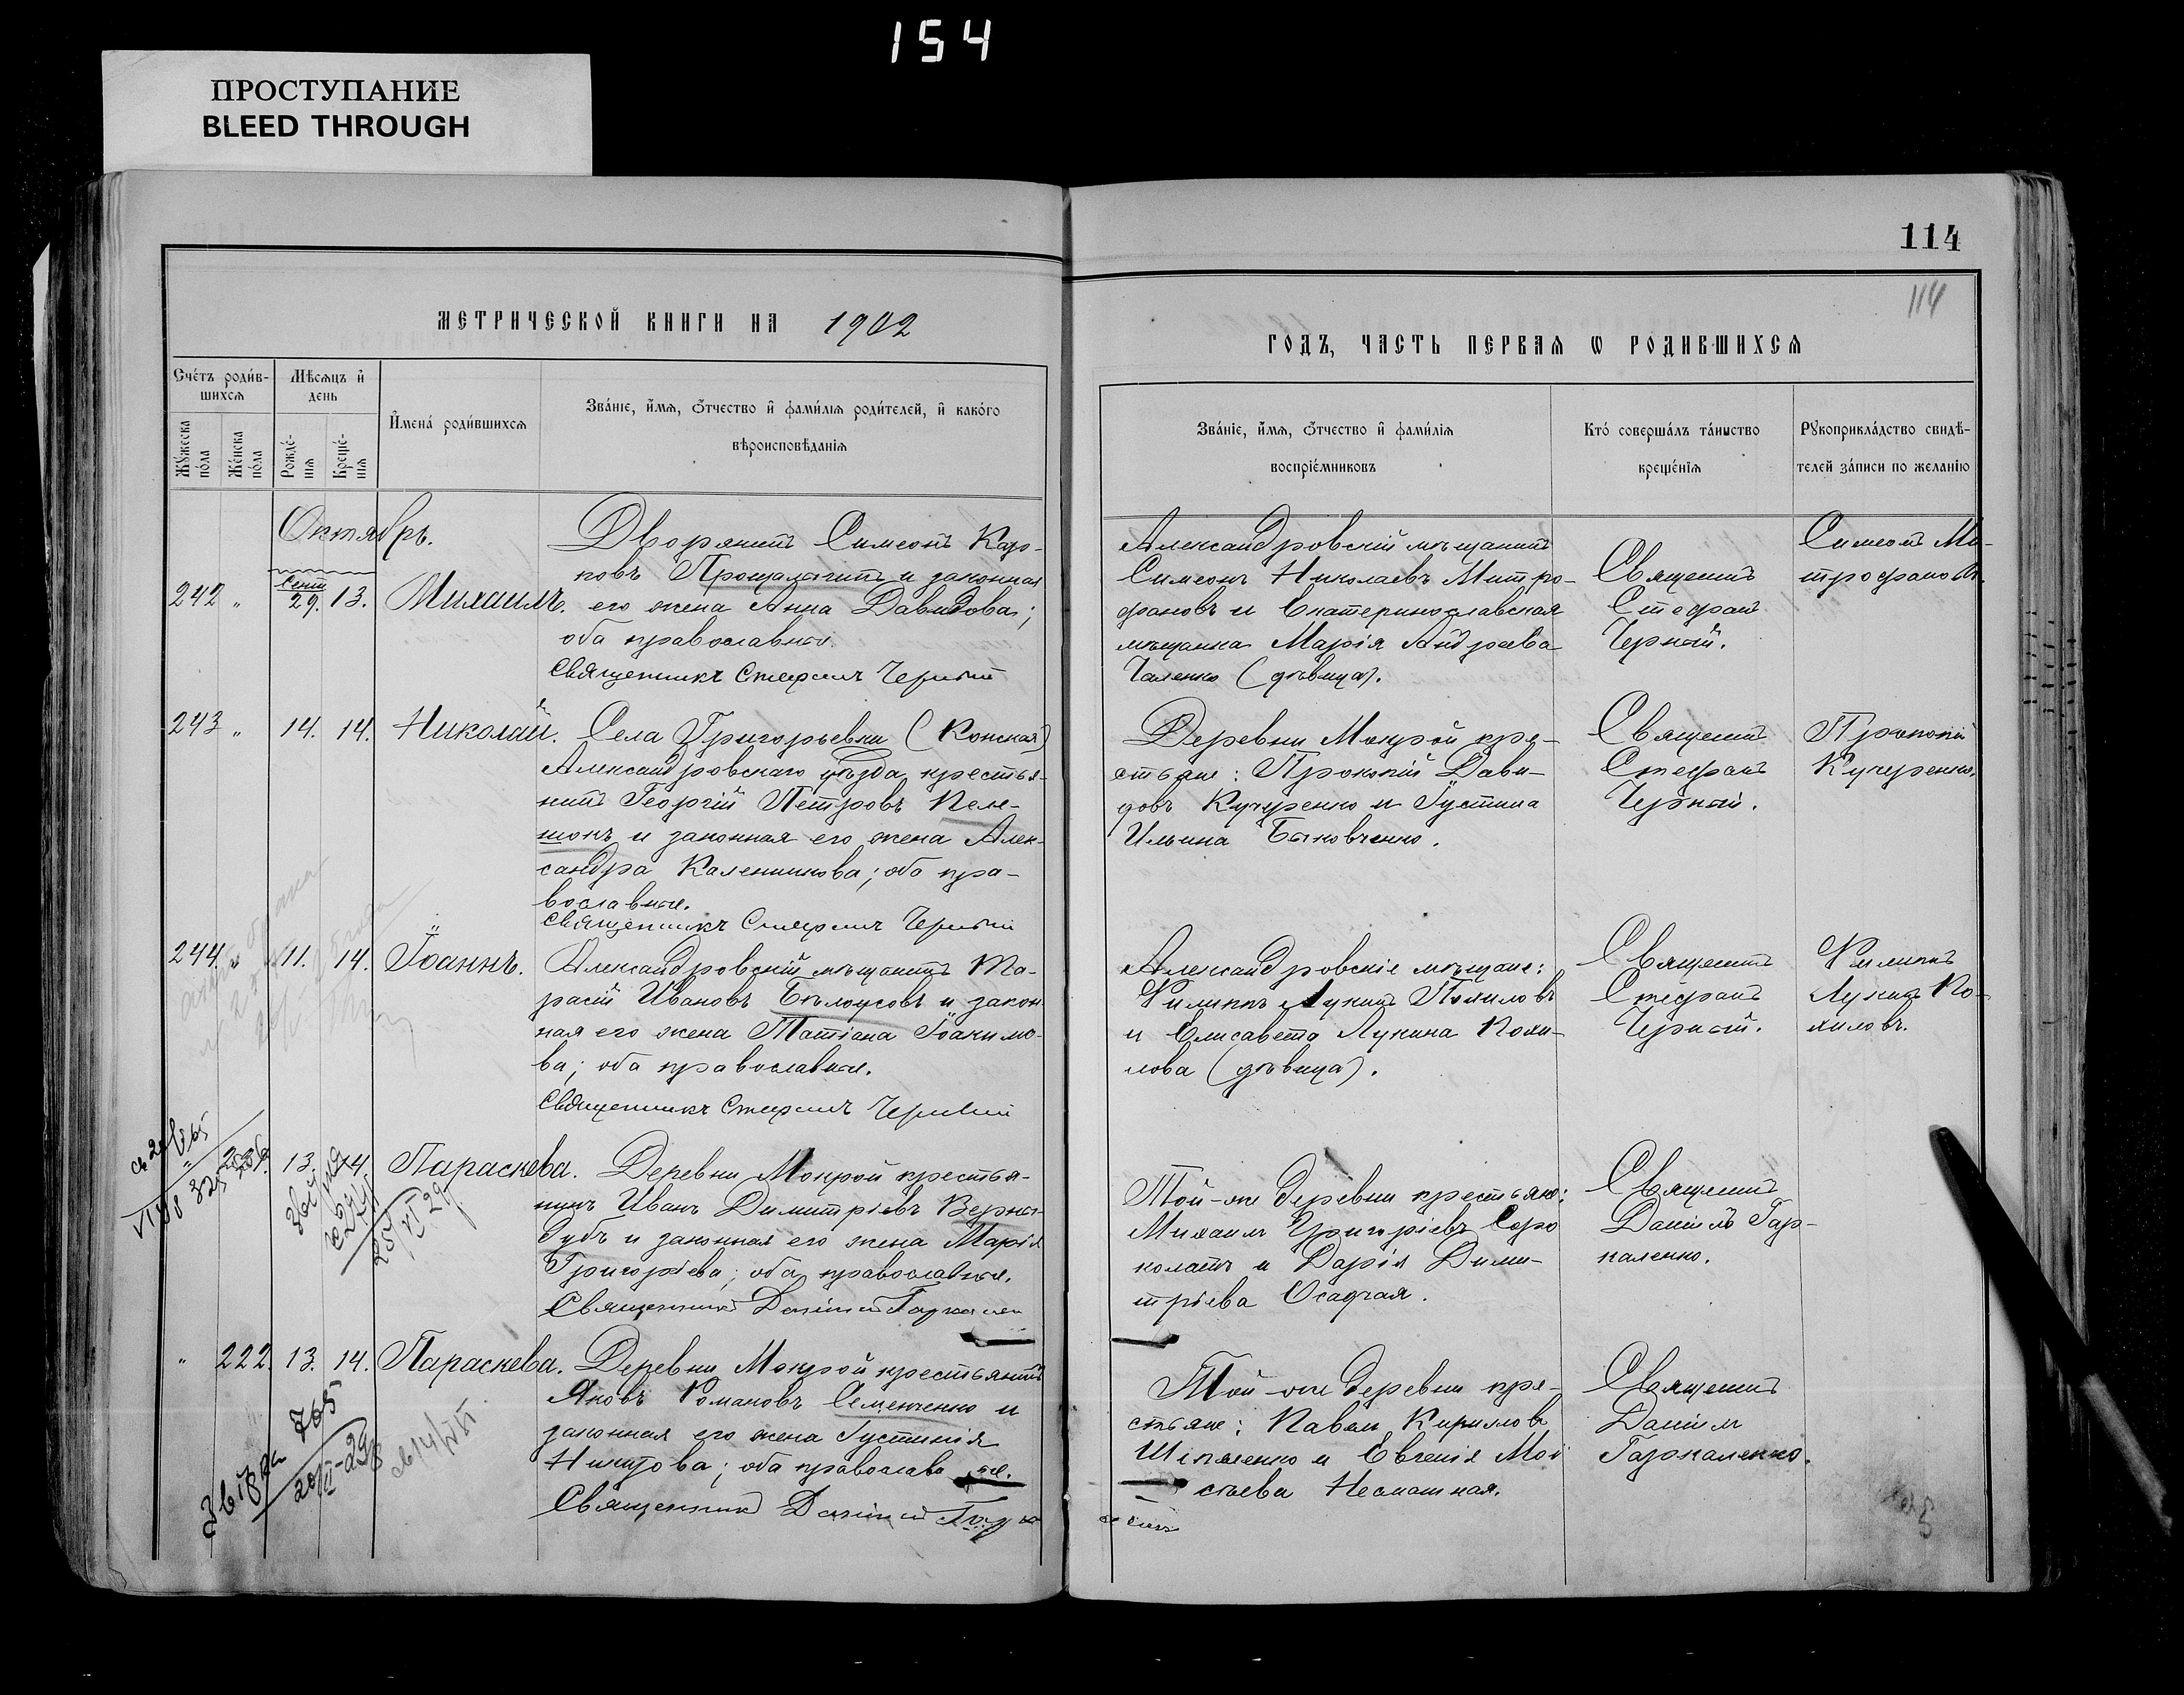 154
ПРОСТУПАНИЕ
BLEED THROUGH
114
114
МЕТРИЧЕСКОЙ КНИГИ НА 1902
ГОДЪ, ЧАСТЬ ПЕРВАЯ Ѡ РОДИВШИХСЯ
Счетъ родив-
шихся
Мужеска
пола
Женска
пола
Мѣсяцъ и
день
Рожде-
нія
Креще-
нія
Имена родившихся
Званіе, имя, отчество и фамилія родителей, и какого
вѣроисповѣданія
Званіе, имя, отчество и фамилія
воспріемниковъ
Кто совершалъ таинство
крещенія
Рукоприкладство свидѣ-
телей записи по желанію
Октябрь.
242 " Сент 29. 13. Михаилъ.
Дворянинъ Симеонъ Кар-
повъ и законная
его жена Анна Давидова;
оба православные.
Священникъ Стефанъ Черный
Александровскій мѣщанинъ
Симеонъ Николаевъ Митро-
фановъ и Екатеринославская
мѣщанка Марія Андреева
Чаленко (дѣвица).
Священникъ
Стефанъ
Черный.
Симеонъ Ми-
трофановъ.
243 " 14. 14. Николай.
Села Григорьевки (Конская)
Александровскаго уѣзда крестья-
нинъ Георгій Петровъ Пеле-
шокъ и законная его жена Алек-
сандра Каленникова; оба пра-
вославные.
Священникъ Стефанъ Черный
Деревни Мокрой кре-
стьяне: Прокопій Дави-
довъ Кучеренко и Іустина
Ильина Быковченко.
Священникъ
Стефанъ
Черный.
Прокопій
Кучеренко.
244. " 11. 14. Іоаннъ.
Александровскій мѣщанинъ Та-
расій Ивановъ Бѣлоусовъ и закон-
ная его жена Татіана Іоакимо-
ва; оба православные.
Священникъ Стефанъ Черный
Александровскіе мѣщане:
Филиппъ Лукинъ Похиловъ
и Елисавета Лукина Похи-
лова (дѣвица).
Священникъ
Стефанъ
Черный.
Филиппъ
Лукинъ По-
хиловъ.
" 13. 14. Параскева.
Деревни Мокрой крестья-
нинъ Иванъ Димитріевъ Верни-
дубъ и законная его жена Марія
Григоріева; оба православные.
Священникъ Даніилъ
Той-же деревни крестьяне:
Михаилъ Григоріевъ Соро
колатъ и Дарія Дими-
тріева Осадчая.
Священникъ
Даніилъ Гар-
каленко.
" 222. 13. 14. Параскева.
Деревни Мокрой крестьянинъ
Яковъ Романовъ Семенченко и
законная его жена Іустинія
оба православные.
Священникъ Даніилъ
Той-же деревни кре-
стьяне: Павелъ Кирилловъ
и Евгенія Мой
сеева
Священникъ
Даніилъ
Гаркаленко.